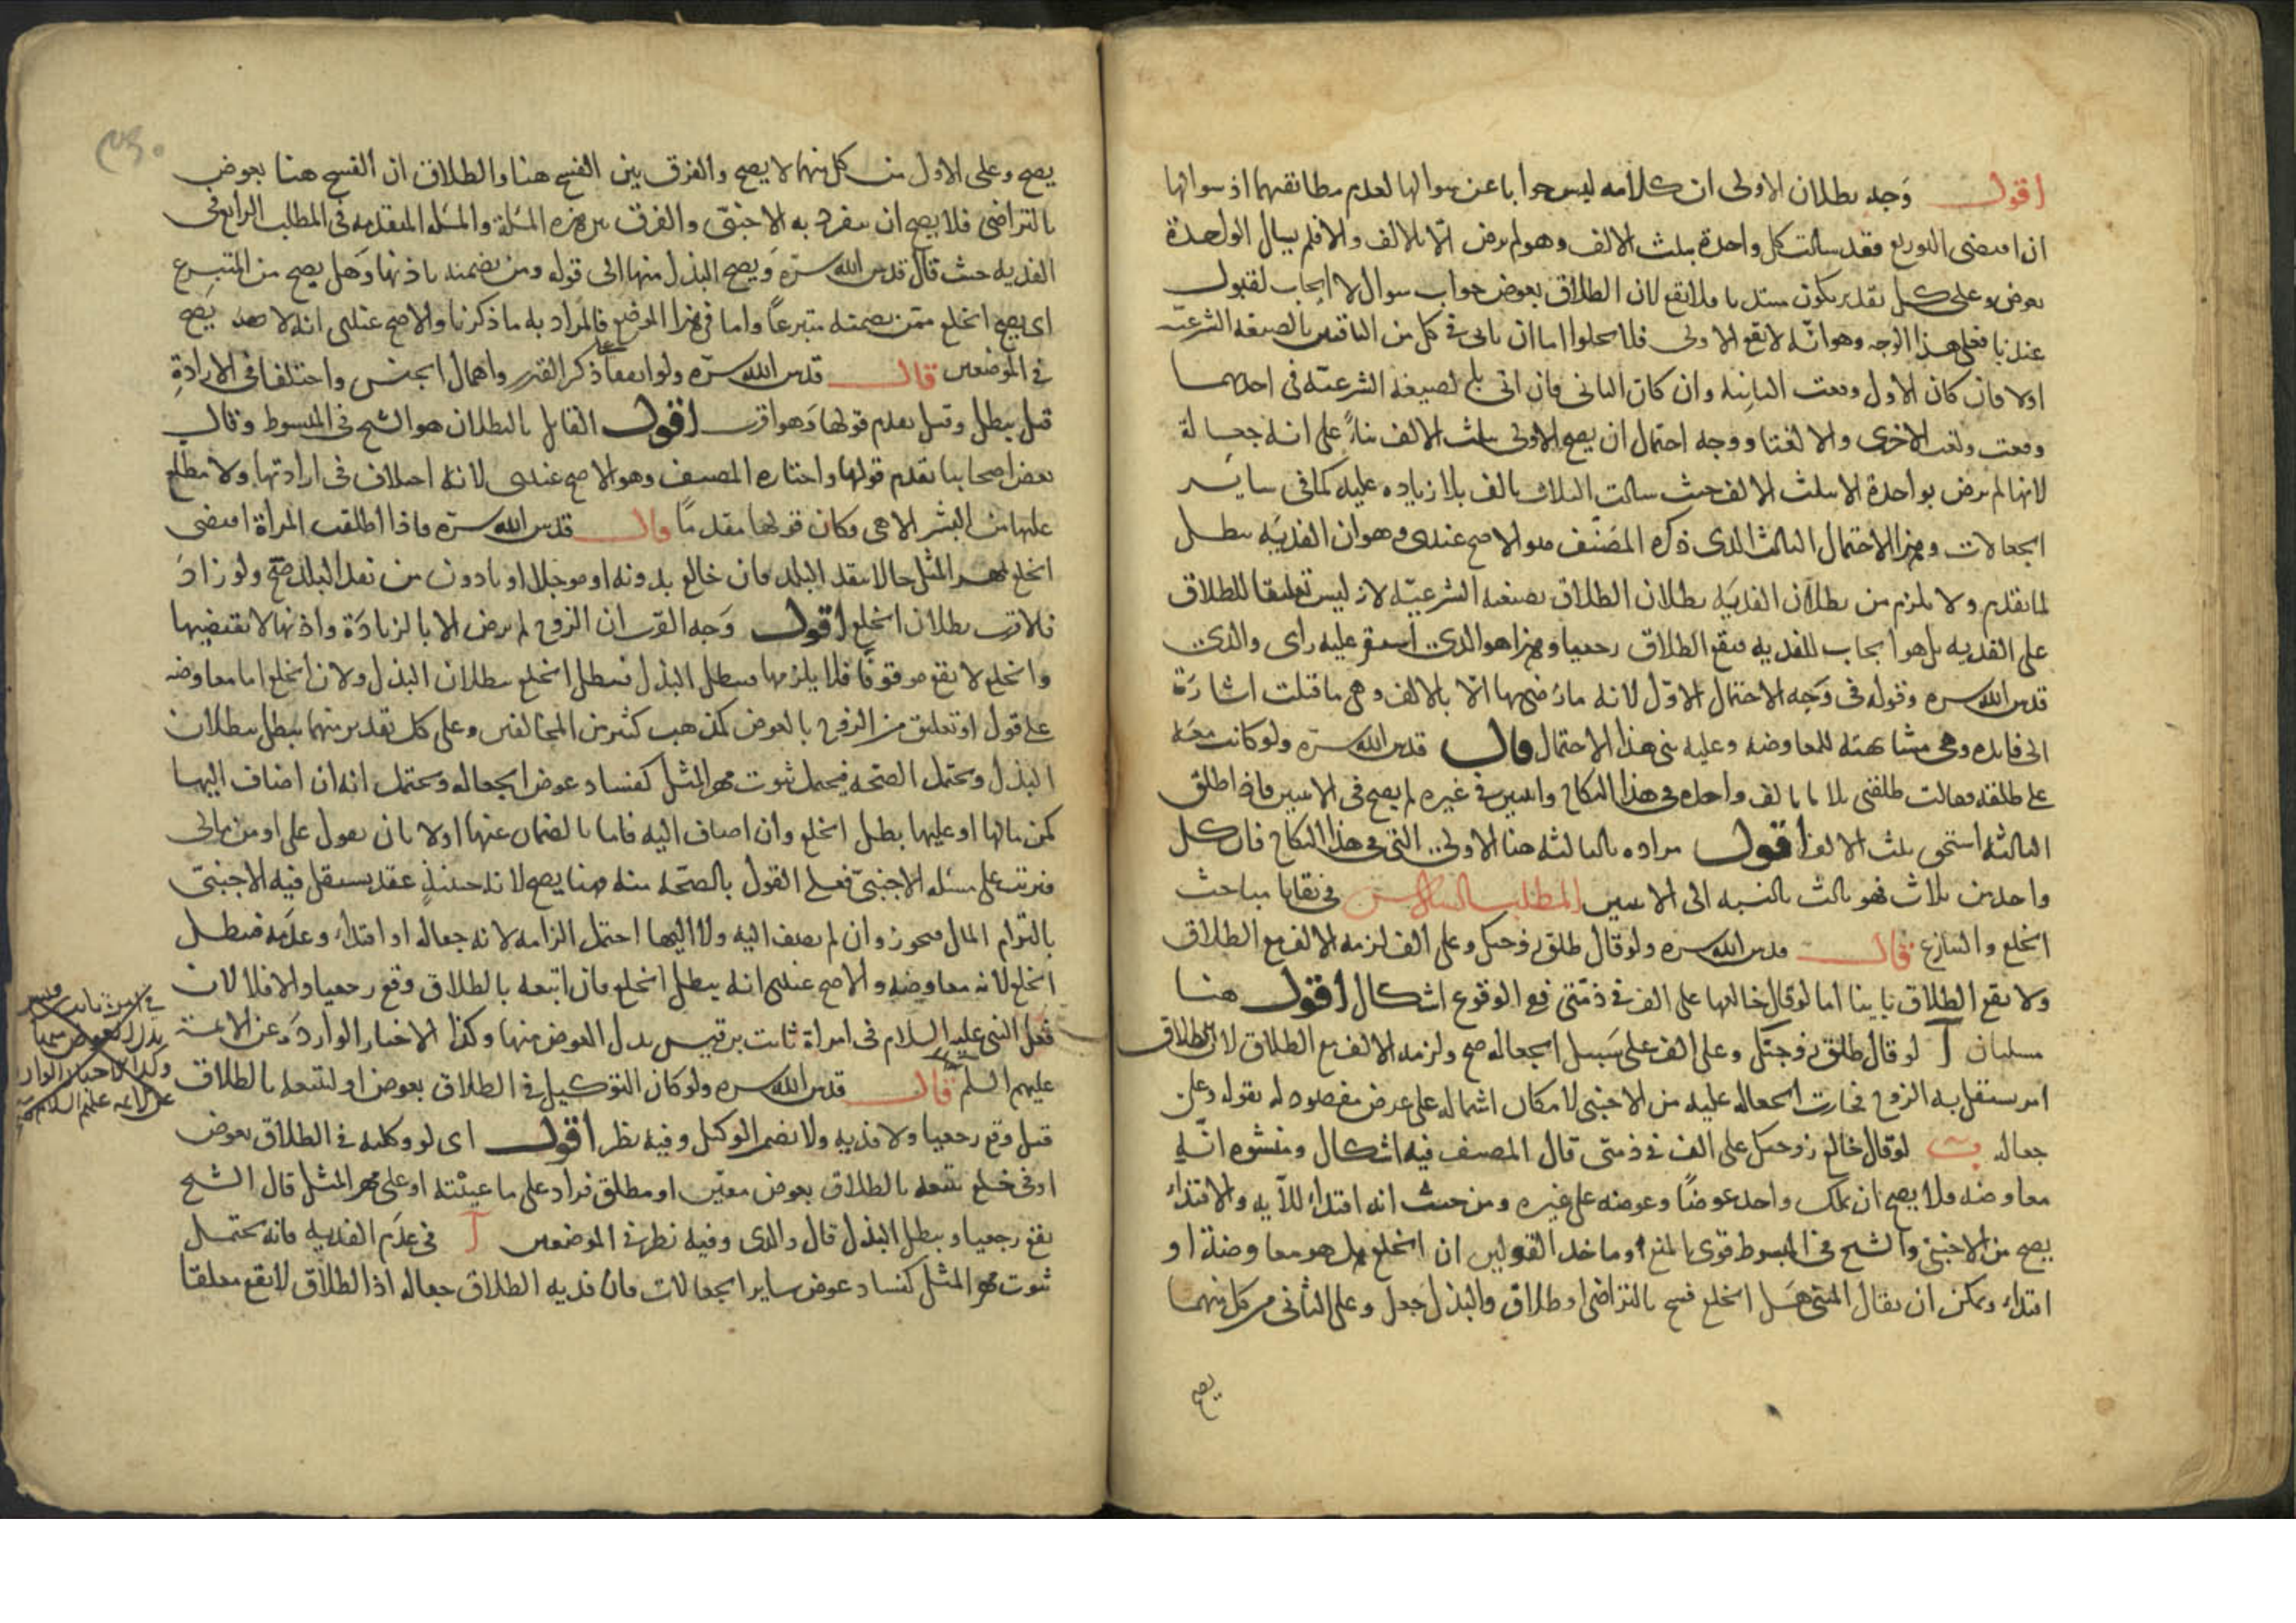 اقول وجه بطلان الاولى ان كلامه ليس جوابا عن سوالها لعدم مطابقتهما اذ سوالها
ان اقتضى التوزيع فقد سالت كل واحدة بثلث الالف وهو لم يرض الا بالالف والا فلم يسال الواحدة
بعوض وعلى كل تقدير يكون مبتديا فلا يقع لان الطلاق بعوض جواب سوال لا ايجاب لقبول
عندنا فعلى هذا الوجه وهو انه لا تقع الاولى فلا يخلوا اما ان ياتى فى كل من الباقيتين بالصيغة الشرعية
اولا فان كان الاول وقعت الثانية وان كان الثانى فان اتى بالصيغة الشرعية فى احديهما
وقعت ولغت الاخرى والا لغتا ووجه احتمال ان يصح الاولى بثلث الالف بناءً على انه جعالة
لانها لم ترض بواحدة الا بثلث الالف حيث سالت الثلاث بالف بلا زيادة عليه كما فى ساير
الجعالات وهذا الاحتمال الثالث الذى ذكره المصنف هو الاصح عندى وهو ان الفدية تبطل
لما تقدم ولا يلزم من بطلان الفدية بطلان الطلاق بصيغة الشرعية لانه ليس تعليقا للطلاق
على الفدية بل هو ايجاب للفدية فيقع الطلاق رجعيا وهذا هو الذى استقر عليه راى والدى
قدس الله سره وقوله فى وجه الاحتمال الاول لانه ما رضى بها الا بالالف وهى ما قبلت اشارة
الى فايدة وهى مشابهته للمعاوضة وعليه بنى هذا الاحتمال قال قدس الله سره ولو كانت معه
على طلقة فقالت طلقنى ثلاثا بالف واحدة فى هذا النكاح واثنين فى غيره لم يصح فى الاثنين فاذا طلق
الثالثة استحق ثلث الالف اقول مراده بالثالثة هنا الاولى التى فى هذا النكاح فان كل
واحد من ثلاث فهو ثالث بالنسبة الى الاثنين المطلب السادس فى بقايا مباحث
الخلع والتنازع قال قدس الله سره ولو قال طلق زوجتك وعلى الف لزمه الالف مع الطلاق
ولا يقع الطلاق باينا اما لو قال خالعها على الف فى ذمتى فمع الوقوع اشكال اقول هنا
مسلتان آ لو قال طلق زوجتك وعلى الف على سبيل الجعالة صح ولزمه الالف مع الطلاق لان الطلاق
امر يستقل به الزوج فجازت الجعالة عليه من الاجنبى لامكان اشتماله على عرض مقصود له بقوله وعلى
جعالة ب لو قال خالع زوجتك على الف فى ذمتى قال المصنف فيه اشكال ومنشوه انه
معاوضة فلا يصح ان يملك واحد عوضًا وعوضه على غيره ومن حيث انه افتداء للآية والافتداء
يصح من الاجنبى والشيخ فى المبسوط قوى المنع وماخذ القولين ان الخلع هل هو معاوضة او
افتداء ويمكن ان يقال المبنى هل الخلع فسخ بالتراضى او طلاق والبذل جعل وعلى الثانى من كل منهما
يصح
يصح وعلى الاول من كل منهما لا يصح والفرق بين الفسخ هنا والطلاق ان الفسخ هنا بعوض
بالتراضى فلا يصح ان ينفرد به الاجنبى والفرق بين هذه المسلة والمسلة المتقدمة فى المطلب الرابع فى
الفدية حيث قال قدس الله سره ويصح البذل منها الى قوله ومن يضمنه باذنها وهل يصح من المتبرع
اى يصح الخلع ممن يضمنه متبرعاً واما فى هذا الموضع فالمراد به ما ذكرنا والاصح عندى انه لا يصح
فى الموضعين قال قدس الله سره ولو اتفقا على ذكر القدر واهمال الجنس واختلفا فى الارادة
قيل يبطل وقيل يقدم قولها وهو اقرب اقول القايل بالبطلان هو الشيخ فى المبسوط وقال
بعض اصحابنا تقدم قولها واختاره المصنف وهو الاصح عندى لانه اختلاف فى ارادتها ولا يطلع
عليها من البشر الا هى فكان قولها مقدمًا قال قدس الله سره واذا اطلقت المراة اقتضى
الخلع بمهر المثل حالا بنقد البلد فان خالع بدونه او موجلا او بادون من نقد البلد صح ولو زاد
فالاقرب بطلان الخلع اقول وجه القرب ان الزوج لم يرض الا بالزيادة واذنها لا تقتضيها
والخلع لا يقع موقوفًا فلا يلزمها فيبطل البذل فيبطل الخلع ببطلان البذل ولان الخلع اما معاوضة
على قول او تعليق من الزوج بالعوض كمذهب كثير من المخالفين وعلى كل تقدير منهما يبطل ببطلان
البذل ويحتمل الصحة فيحتمل ثبوت مهر المثل كفساد عوض الجعالة ويحتمل انه ان اضاف اليها
كمن مالها او عليها بطل الخلع وان اضاف اليه فاما بالضمان عنها اولا بان يقول على او من مالى
فيرتب على مسلة الاجنبى فعلى القول بالصحة منه هنا يصح لانه حينئذ عقد يستقل فيه الاجنبى
بالتزام المال فيجوز وان لم يضف اليه ولا اليها احتمل الزامه لانه جعالة او افتداء وعدمه فيبطل
الخلع لانه معاوضة والاصح عندى انه يبطل الخلع فان اتبعه بالطلاق وقع رجعيا والا فلا لان
فعل النبى عليه السلام فى امراة ثابت بن قيس بدل العوض منها وكذا الاخبار الواردة عن الايمة
عليهم السلم قال قدس الله سره ولو كان التوكيل فى الطلاق بعوض او لتتبعه بالطلاق
قيل وقع رجعيا ولا فدية ولا يضمن الوكيل وفيه نظر اقول اى لو وكلته فى الطلاق بعوض
او فى خلع تتبعه بالطلاق بعوض معين او مطلق فزاد على ما عينته او على مهر المثل قال الشيخ
يقع رجعيا ويبطل البذل قال والدى وفيه نظر فى الموضعين آ فى عدم الفدية فانه يحتمل
ثبوت مهر المثل كفساد عوض ساير الجعالات فان فدية الطلاق جعالة اذ الطلاق لا يقع معلقا